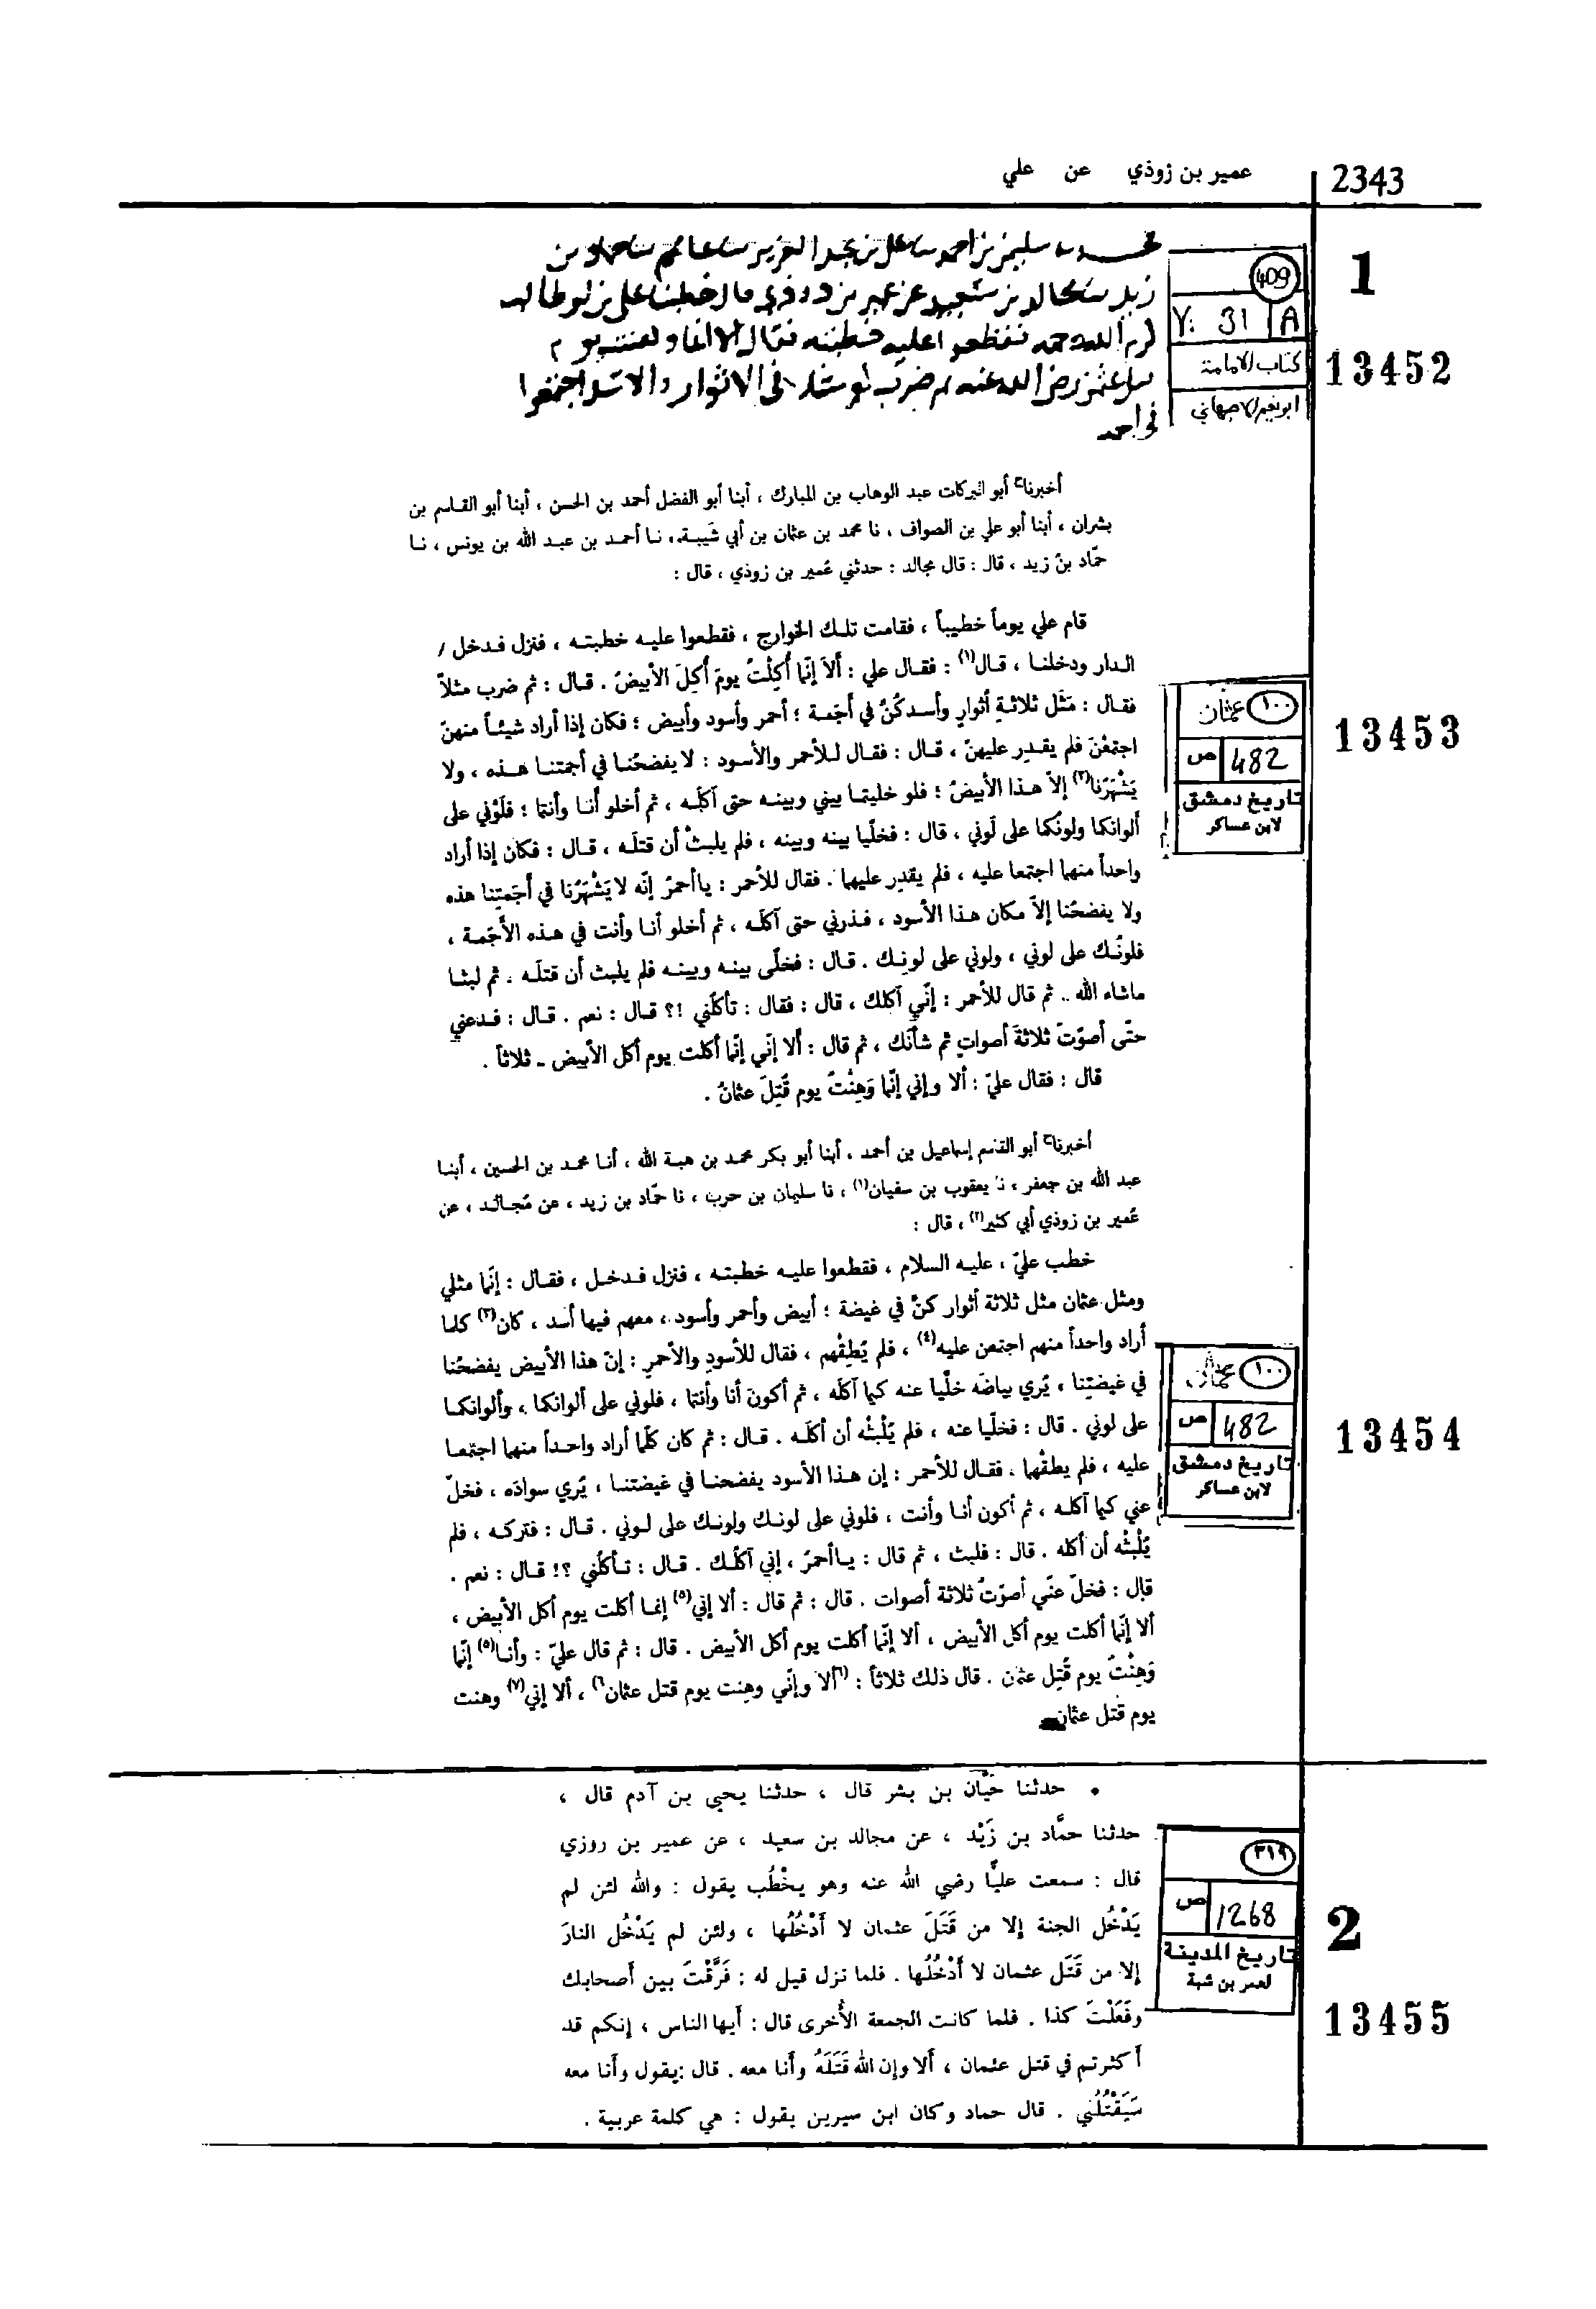 2343
عمير بن زوذي عن علي
1
409
31 A
كتاب الامامة
ابو نعيم الاصبهاني
13452
سليمن بن احمد علي بن عبد العزيز عارم حماد بن
زيد مجالد بن سعيد عن عمير بن زوذي قال خطبنا علي بن ابي طالب
كرم الله وجهه فقطعوا عليه خطبته فقال الا انما وهنت يوم
قتل عثمن رضي الله عنه ثم ضرب لهم مثلا في الاثوار والاسد اجتمعوا
في اجمة
أخبرنا أبو البركات عبد الوهاب بن المبارك ، أبنا أبو الفضل أحمد بن الحسن ، أبنا أبو القاسم بن
بشران ، أبنا أبو علي بن الصواف ، نا محمد بن عثمان بن أبي شَيبة ، نا أحمد بن عبد الله بن يونس ، نا
حمّاد بنُ زيد ، قال : قال مجالد : حدثني عُمير بن زوذي ، قال :
قام علي يوماً خطيباً ، فقامت تلك الخوارج ، فقطعوا عليه خطبته ، فنزل فدخل /
الدار ودخلنا ، قال(١) : فقال علي : ألاَ إنّما أُكِلْتُ يومَ أُكِلَ الأبيضُ . قال : ثم ضرب مثلاً
فقال : مَثَل ثلاثةِ أثوارٍ وأسدكُنَّ في أجَمة ؛ أحمر وأسود وأبيض ؛ فكان إذا أراد شيئاً منهنّ
اجتمعْنَ فلم يقدِر عليهنّ ، قال : فقال للأحمر والأسود : لا يفضحُنا في أجمتنا هذه ، ولا
يَشْهَرُنا(٢) إلاّ هذا الأبيضُ ؛ فلو خليتما بيني وبينه حتى آكلَه ، ثم أخلو أنا وأنتما ؛ فلَوْني على
ألوانكما ولونُكما على لَوني ، قال : فخلّيا بينه وبينه ، فلم يلبثْ أن قتلَه ، قال : فكان إذا أراد
واحداً منهما اجتمعا عليه ، فلم يقدِر عليهما . فقال للأحمر : ياأحمرُ إنّه لا يَشْهَرُنا في أجَمتِنا هذه
ولا يفضحُنا إلاّ مكان هذا الأسود ، فذرني حتى آكلَه ، ثم أخلو أنا وأنت في هذه الأجَمة ،
فلونُك على لوني ، ولوني على لونِك . قال : فخلّى بينه وبينه فلم يلبث أن قتلَه . ثم لبثا
ماشاء الله .. ثم قال للأحمر : إنّي آكلك ، قال : فقال : تأكلُني !؟ قال : نعم . قال : فدعني
حتّى أصوّتَ ثلاثةَ أصواتٍ ثم شأنَك ، ثم قال : ألا إنّي إنّما أكلت يوم أكل الأبيض ـ ثلاثاً .
قال : فقال عليّ : ألا وإني إنّما وَهِنْتُ يوم قُتِلَ عثمانُ .
١٠٠ عثمان
ص 482
تاريخ دمشق
لابن عساكر
13453
أخبرنا أبو القاسم إسماعيل بن أحمد ، أبنا أبو بكر محمد بن هبة الله ، أنا محمد بن الحسين ، أبنا
عبد الله بن جعفر ، نا يعقوب بن سفيان(١) ، نا سليمان بن حرب ، نا حمّاد بن زيد ، عن مُجالد ، عن
عُمير بن زوذي أبي كثير(٢) ، قال :
خطب عليّ ، عليه السلام ، فقطعوا عليه خطبته ، فنزل فدخل ، فقال : إنّما مثلي
ومثل عثمان مثل ثلاثة أثوار كنّ في غيضة ؛ أبيض وأحمر وأسود ، معهم فيها أسد ، كان(٣) كلما
أراد واحداً منهم اجتمعن عليه(٤) ، فلم يُطِقْهم ، فقال للأسودِ والأحمرِ : إنّ هذا الأبيض يفضحُنا
في غيضتِنا ، يُرى بياضَه خلّيا عنه كيما آكلَه ، ثم أكونَ أنا وأنتما ، فلوني على ألوانكما ، وألوانكما
على لوني . قال : فخلّيا عنه ، فلم يُلْبثْه أن أكلَه . قال : ثم كان كلّما أراد واحداً منهما اجتمعا
عليه ، فلم يطقْهما . فقال للأحمر : إن هذا الأسود يفضحنا في غيضتنا ، يُرى سوادَه ، فخلّ
عني كيما آكله ، ثم أكون أنا وأنت ، فلوني على لونك ولونك على لوني . قال : فتركه ، فلم
يُلْبثْه أن أكله . قال : فلبث ، ثم قال : ياأحمرُ ، إني آكلُك . قال : تأكلُني ؟! قال : نعم .
قال : فخلّ عنّي أصوّتُ ثلاثة أصوات . قال : ثم قال : ألا إني(٥) إنما أكلت يوم أكل الأبيض ،
ألا إنّما أكلت يوم أكل الأبيض ، ألا إنّما أكلت يوم أكل الأبيض . قال : ثم قال عليّ : وأنا(٥) إنّما
وَهِنْتُ يوم قُتِل عثمن . قال ذلك ثلاثاً : (٦ألا وإنّي وهِنت يوم قتل عثمان٦) ، ألا إني(٧) وهنت
يوم قتل عثمان
١٠٠ عثمان
ص 482
تاريخ دمشق
لابن عساكر
13454
• حدثنا حَيّان بن بشر قال ، حدثنا يحيى بن آدم قال ،
حدثنا حمَّاد بن زَيْد ، عن مجالد بن سعيد ، عن عمير بن روزي
قال : سمعت عليًّا رضي الله عنه وهو يخْطُب يقول : والله لئن لم
يَدْخُل الجنة إلا من قَتَلَ عثمان لا أَدْخُلُها ، ولئن لم يَدْخُل النارَ
إلا من قَتَل عثمان لا أَدْخُلُها . فلما نزل قيل له : فَرَّقْتَ بين أصحابك
وفَعَلْتَ كذا . فلما كانت الجمعة الأُخرى قال : أيها الناس ، إنكم قد
أكثرتم في قتل عثمان ، ألا وإن الله قَتَلَهُ وأنا معه . قال : يقول وأنا معه
سَيَقْتُلُني . قال حماد وكان ابن سيرين يقول : هي كلمة عربية .
٣١٩
ص 1268
تاريخ المدينة
لعمر بن شبة
2
13455